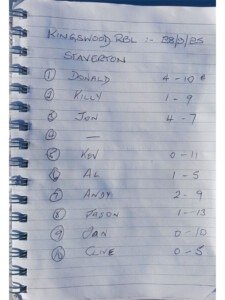 KINGSWOOD RBL :-
STAVERTON
① DONALD 4-10
② KILLY 1-9
③ JON 4-7
④ —
⑤ KEV 0-11
⑥ AL 1-5
⑦ ANDY 2-9
⑧ JASON 1-13
⑨ DAN 0-10
⑩ CLIVE 0-5